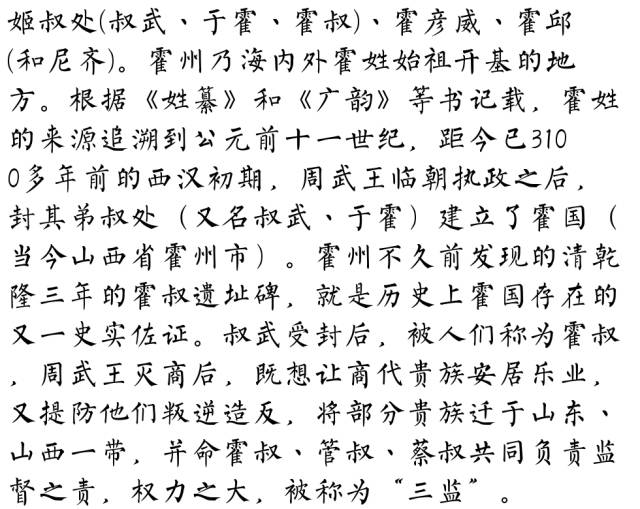 姬叔处(叔武、于霍、霍叔)、霍彦威、霍邱
(和尼齐)。霍州乃海内外霍姓始祖开基的地
方。根据《姓纂》和《广韵》等书记载，霍姓
的来源追溯到公元前十一世纪，距今已310
0多年前的西汉初期，周武王临朝执政之后，
封其弟叔处（又名叔武、于霍）建立了霍国（
当今山西省霍州市）。霍州不久前发现的清乾
隆三年的霍叔遗址碑，就是历史上霍国存在的
又一史实佐证。叔武受封后，被人们称为霍叔
，周武王灭商后，既想让商代贵族安居乐业，
又提防他们叛逆造反，将部分贵族迁于山东、
山西一带，并命霍叔、管叔、蔡叔共同负责监
督之责，权力之大，被称为“三监”。